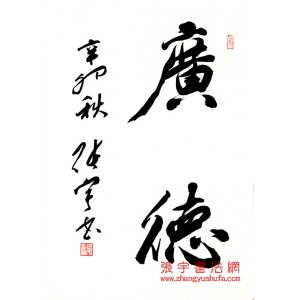 廣德
辛卯秋 張宇書
張宇書法網
www.zhangyushufa.com